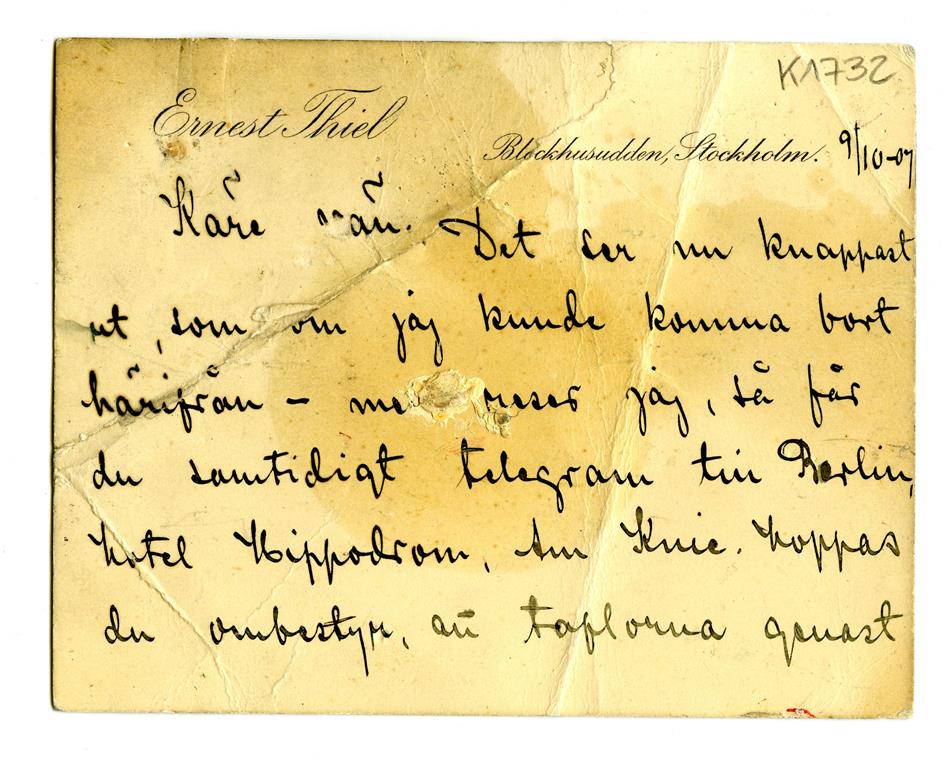 K1732
Ernest Thiel
Blockhusudden, Stockholm. 9/10-07
Käre vän. Det ser nu knappast
ut, som om jag kunde komma bort
härifrån – men reser jag, så får
du samtidigt telegram till Berlin,
hotel Hippodrom, Am Knie. Hoppas
du ombestyr, att taflorna genast